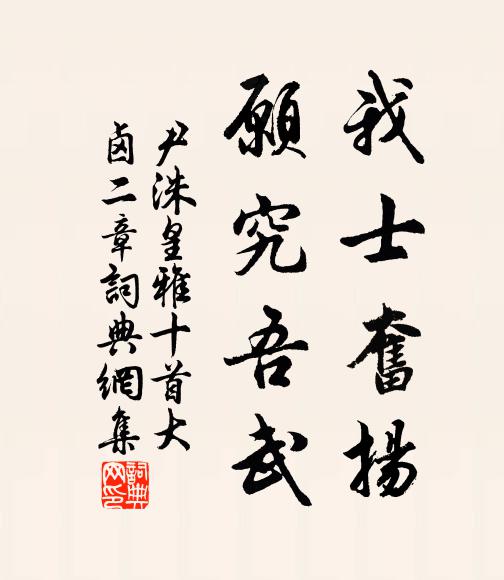 我士奮揚
願究吾武
尹洙皇雅十首大
鹵二章詞典網集
詞典网印